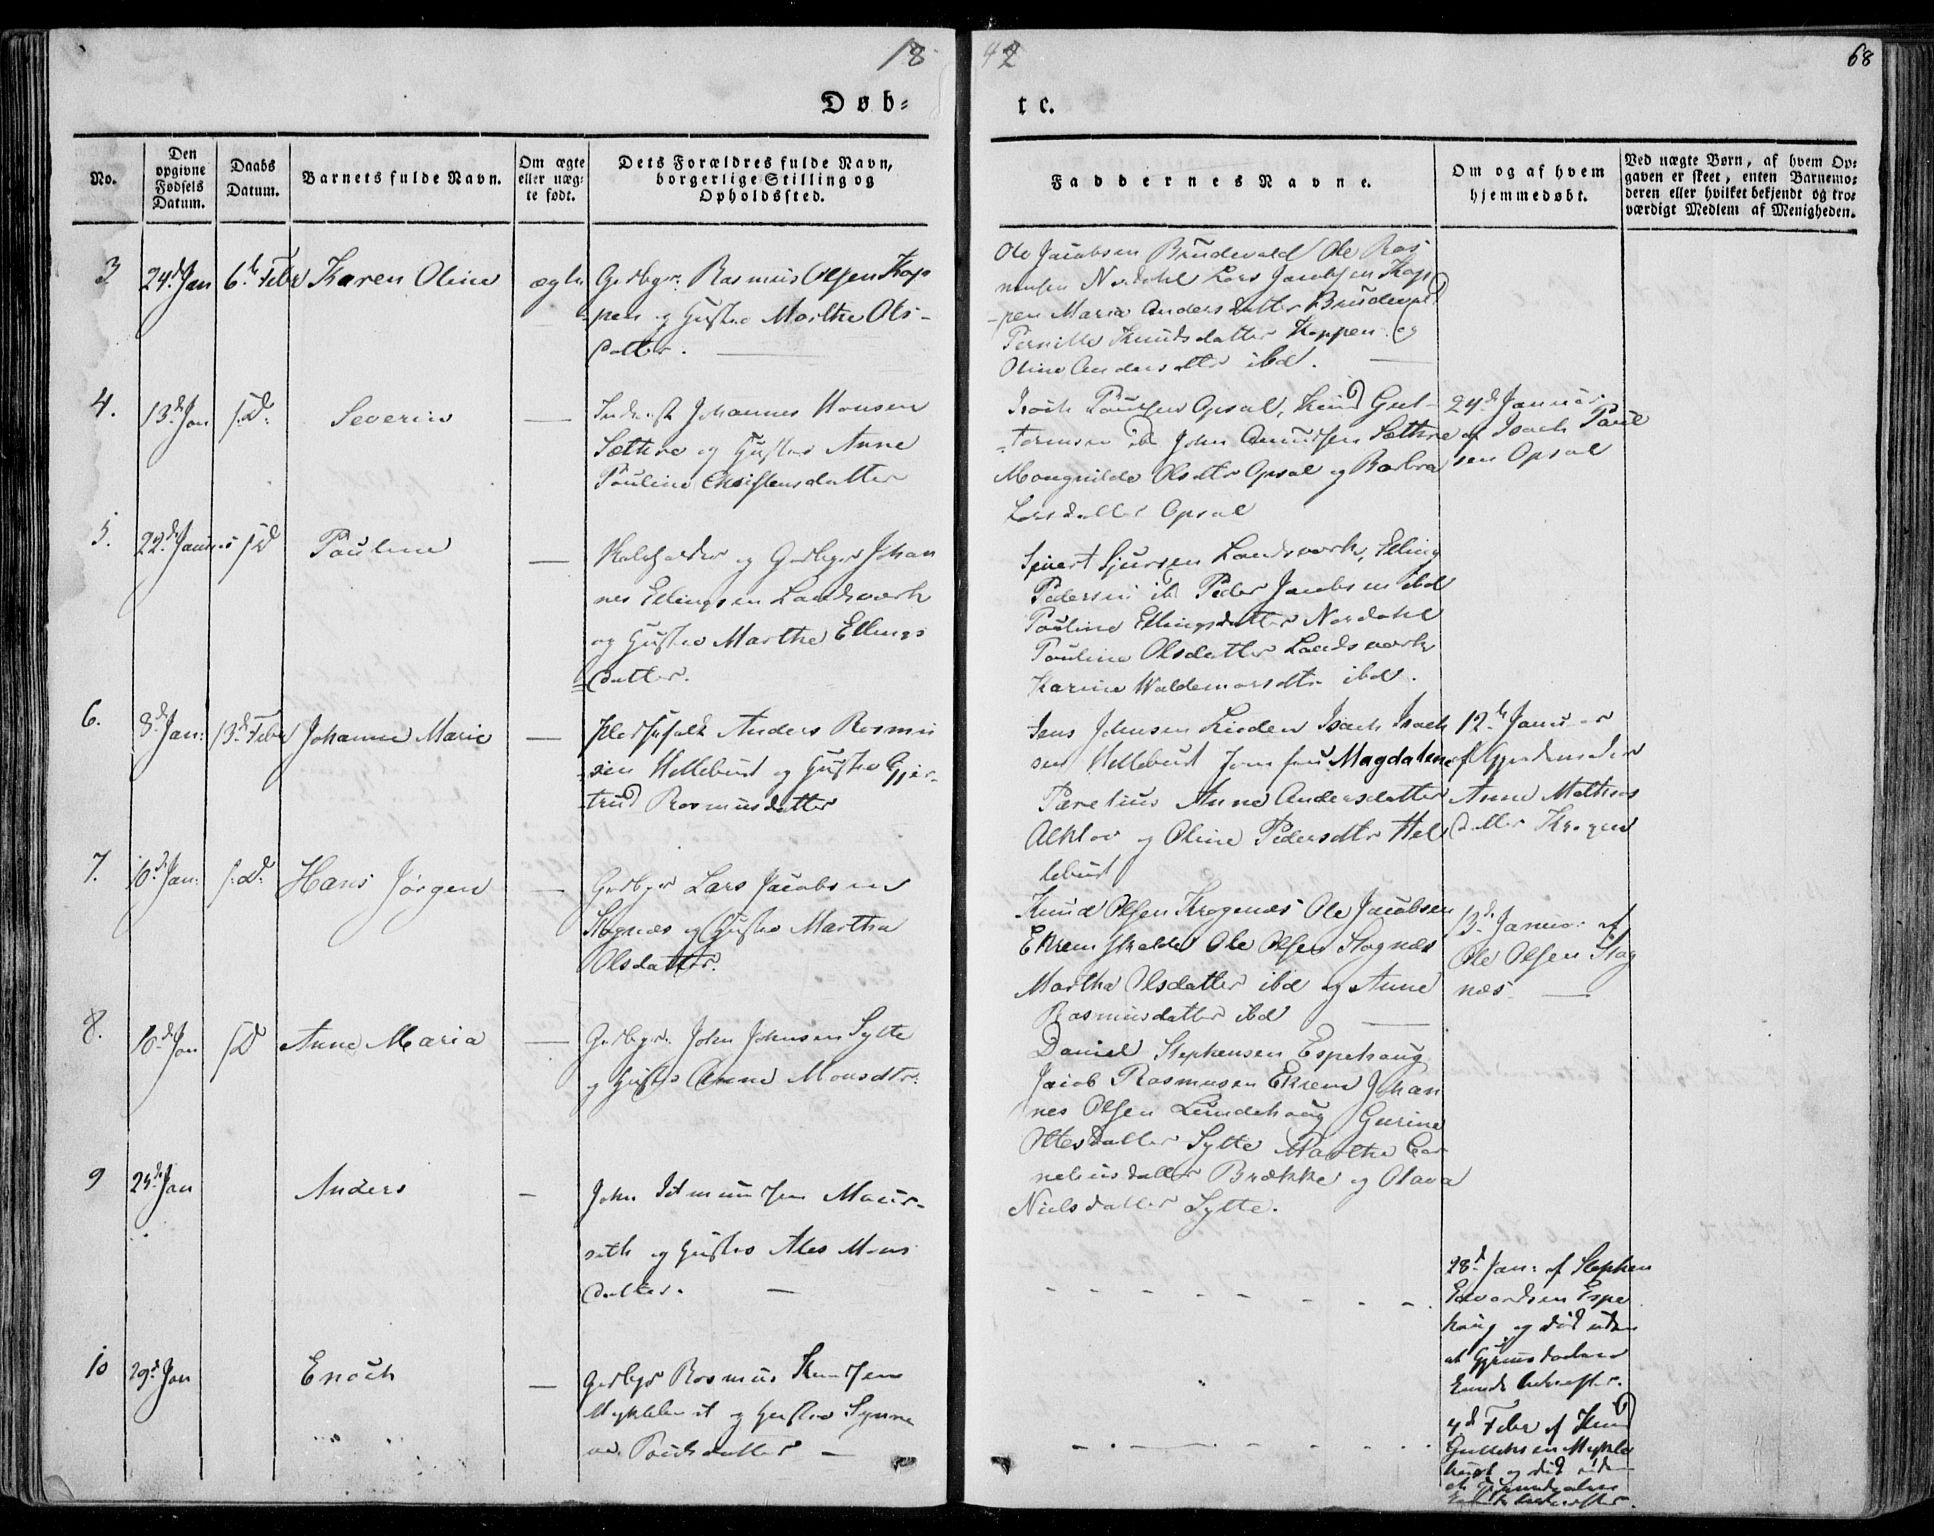 18
42
68
Døb-
te.
No.
Den opgivne Fødsels Datum.
Daabs Datum.
Barnets fulde Navn.
Om ægte eller uægte født.
Dets Forældres fulde Navn, borgerlige Stilling og Opholdssted.
Faddernes Navne.
Om og af hvem hjemmedøbt.
Ved uægte Børn, af hvem Opgaven er skeet, enten Barnemoderen eller hvilket bekjendt og troværdigt Medlem af Menigheden.
3 24de Jan 6te Febr Karen Oline ægte
Gdbgr: Rasmus Olsen Kop
pen og Hustro Marthe Ols-
datter.
Ole Jacobsen Brudevold Ole Ras
musen Nordahl Lars Jacobsen Kop
pen Maria Andersdatter Brudevold
Pernille Knudsdatter Koppen og
Oline Andersdtr ibd.
4. 13de Jan s.D. Severin —
Johannes Hansen
Sæthre og Hustro Anne
Pauline Christensdatter
Isach Paulsen Opsal, Knud Gut-
tormsen ibd John Amundsen Sæthre
Olsdtr Opsal og Barbra
Larsdatter Opsal
24de Januar
af Isach Paul
sen Opsal
5. 22de Januar s.D Pauline —
og Gdbgr Johan
nes Ellingsen Landsværk
og Hustro Marthe Ellings
datter.
Sivert Sjursen Landsværk, Elling
Pedersen ibd Peder Jacobsen ibd
Pauline Ellingsdatter Nordahl
Pauline Olsdatter Landsværk
Karine Waldemarsdtr ibd.
6. 8de Jan: 13de Febr Johanne Marie —
Pladsfolk Anders Rasmu
sen Hellebust og Hustro Gjer-
trud Rasmusdatter
Jens Johnsen Lieden Isach Isach
sen Hellebust Jomfru Magdalene
Parelius Anne Andersdatter
og Oline Pedersdtr Hel
lebust
12te Januar
af Gjordemoder
Anne Mathias
datter
7. 10de Jan: s.D. Hans Jørgen —
Gdbgr Lars Jacobsen
Stognæs og Hustro Martha
Olsdatter.
Knud Olsen Krogenæs Ole Jacobsen
Ekrem Ole Olsen Stognæs
Martha Olsdatter ibd og Anne
Rasmusdatter ibd
13de Januar af
Ole Olsen Stog
næs
8. 10de Jan s.D Anne Maria —
Gdbgr: John Johnsen Sylte
og Hustro Anne Monsdtr:
Daniel Stephensen Espehaug
Jacob Rasmusen Ekrem Johan
nes Olsen Lundehaug Gurine
Ottesdatter Sylte Marthe Cor
neliusdatter Brække og Olava
Nielsdatter Sylte.
9 25de Jan Anders —
John Maur-
seth og Hustro Ales Mons
datter.
28de Jan: af Stephen
Edvardsen Espe
haug og død uden
at
kunde bekræftes.
10 29de Jan Enoch —
Gdbgr Rasmus Knudsen
Myklebust og Hustro Synne
ve Poulsdatter
4de Febr af Knud
Myklebust og død uden